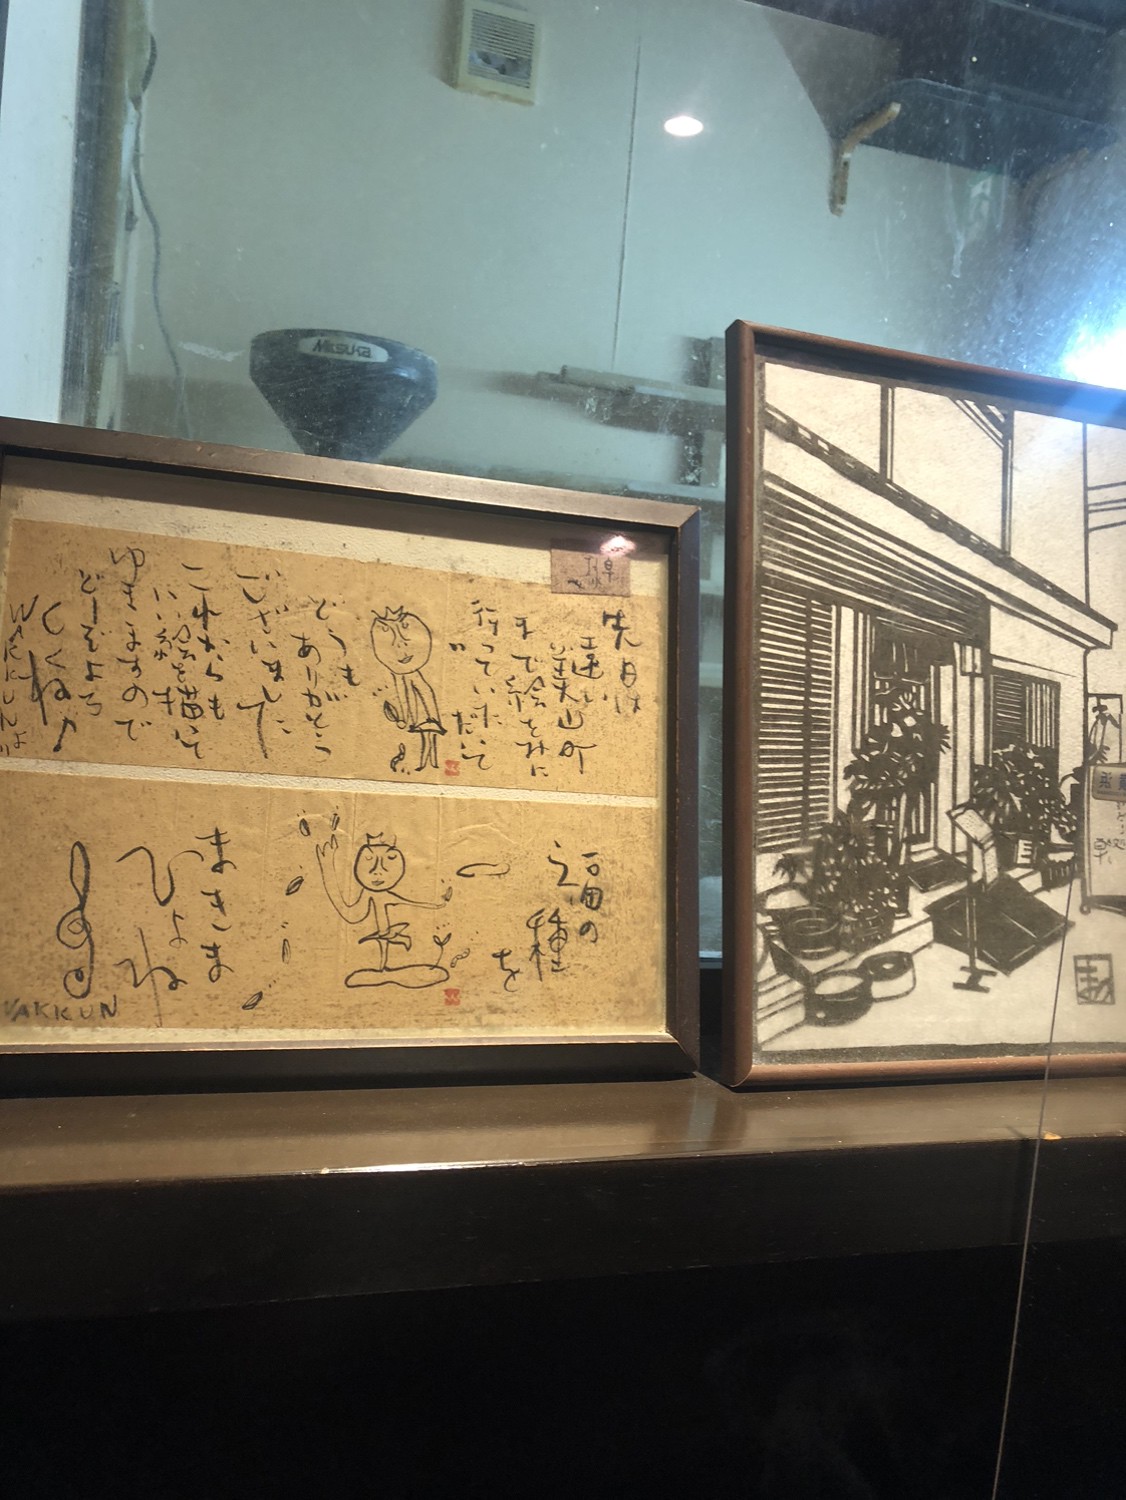 Mitsuka
先月は
遠い
美山町
まで絵をみに
行っていただいて
どうも
ありがとう
ございました
これからも
いい絵を描いて
ゆきますので
どーぞよろ
しくね♪
福の
種
を
まきま
ひょ
ね
VAKKUN